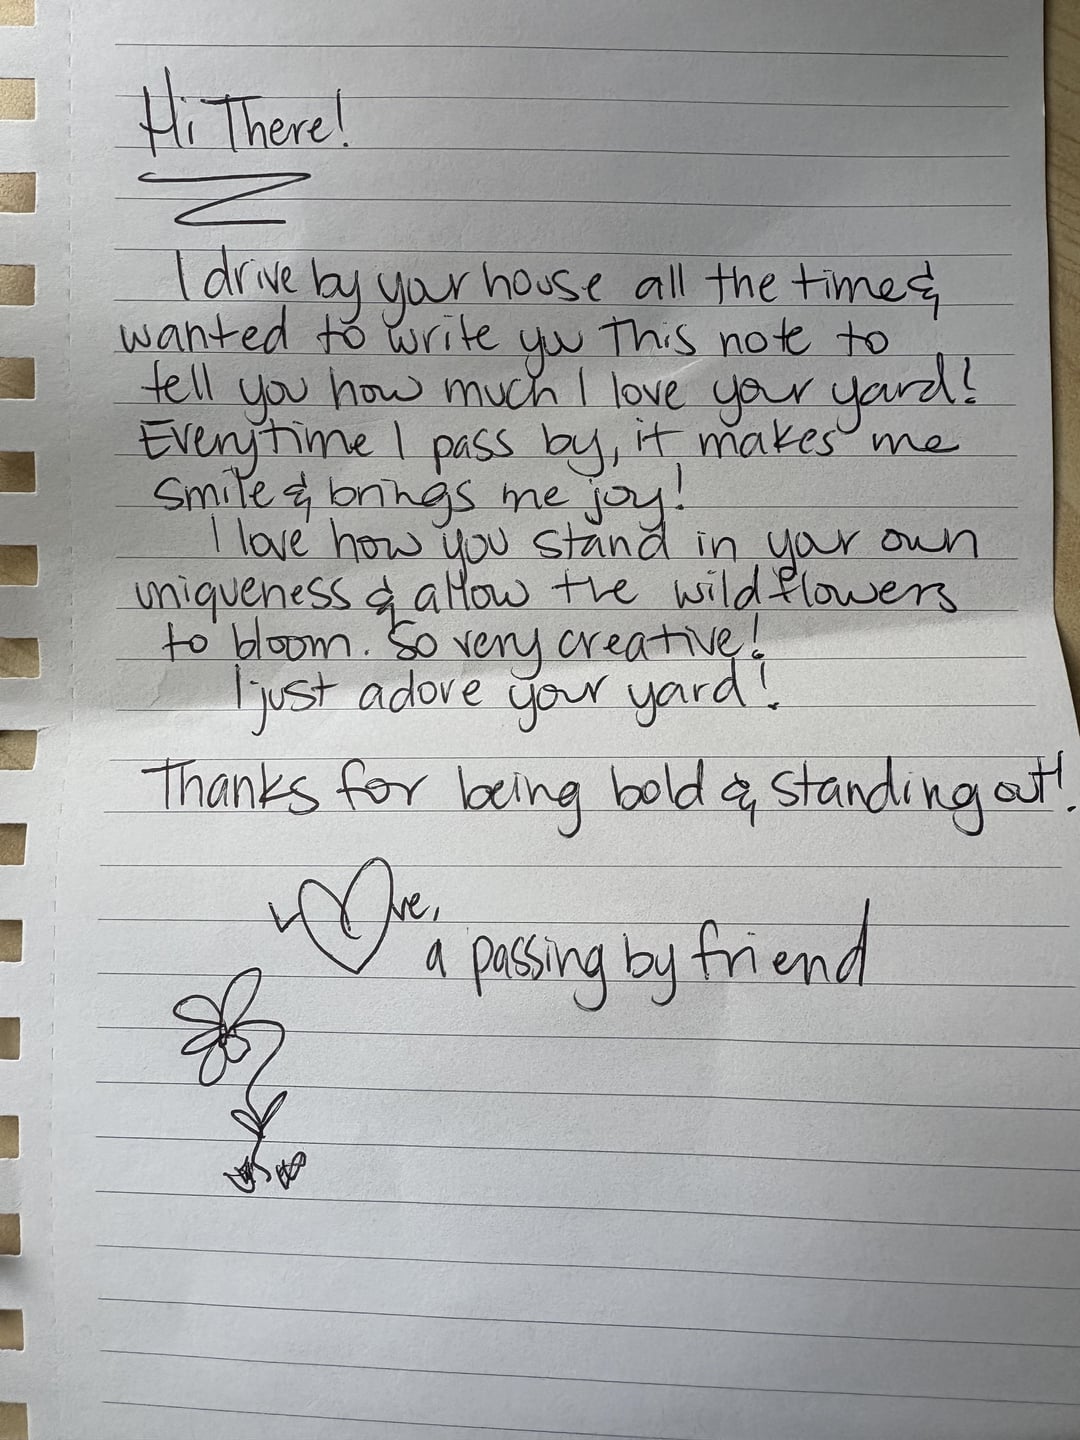 Hi There!
I drive by your house all the time &
wanted to write you This note to
tell you how much I love your yard!
Everytime I pass by, it makes me
smile & brings me joy!
I love how you stand in your own
uniqueness & allow the wildflowers
to bloom. So very creative!
I just adore your yard!
Thanks for being bold & standing out!
Love,
a passing by friend